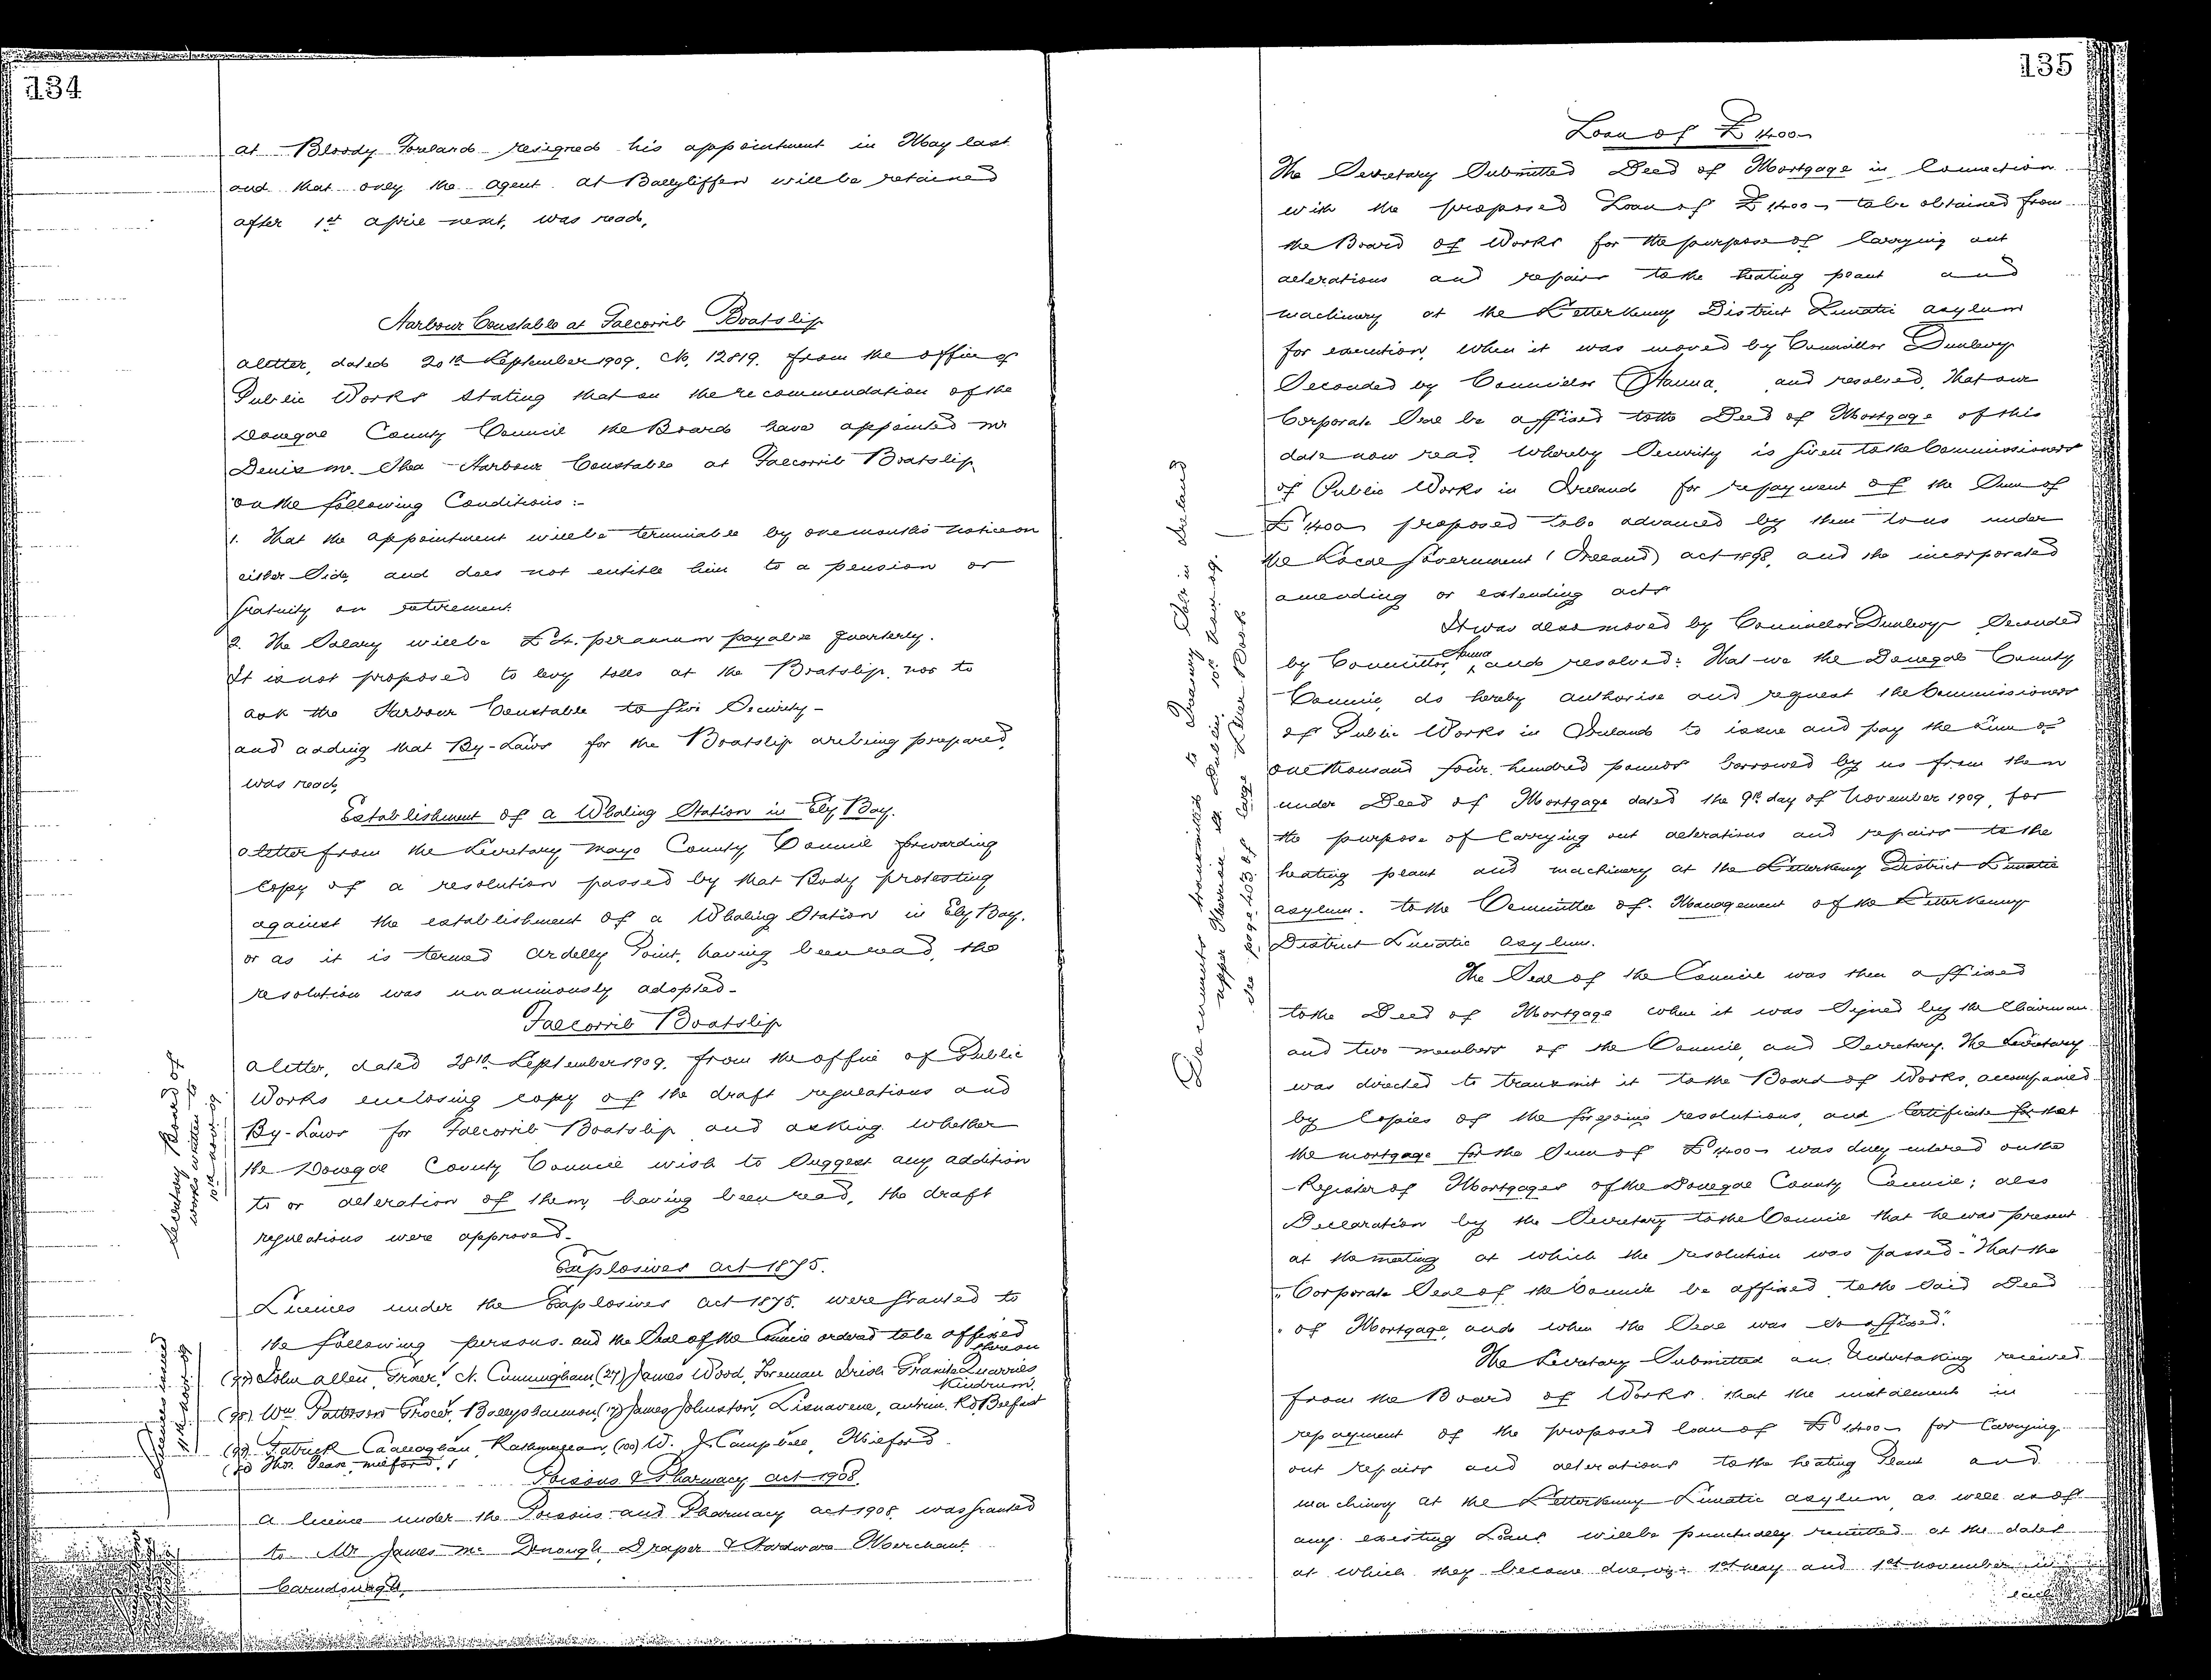 134
at Bloody Foreland resigned his appointment in May last
and that only the agent at Ballyliffen will be retained
after 1st april next, was read,
Harbour Constable at Falcorrib Boatslip
a letter, dated 20th September 1909, No. 12819, from the office of
Public Works stating that on the recommendation of the
Donegal County Council the Board have appointed Mr
Denis Mc Shea Harbour Constable at Falcorrib Boatslip
on the following Conditions :-
1. That the appointment will be terminable by one month's notice on
either Side, and does not entitle him to a pension or
Gratuity on retirement.
2. The Salary will be £4. per annum payable quarterly.
It is not proposed to levy tolls at the Boatslip, nor to
ask the Harbour Constable to give Security -
and adding that By-Laws for the Boatslip are being prepared,
was read,
Establishment of a Whaling Station in Ely Bay.
a letter from the Secretary Mayo County Council forwarding
Copy of a resolution passed by that Body protesting
against the establishment of a Whaling Station in Ely Bay,
or as it is termed Ardelly Point, having been read, the
resolution was unanimously adopted -
Falcorrib Boatslip
a letter, dated 28th September 1909, from the office of Public
Works enclosing copy of the draft regulations and
By-Laws for Falcorrib Boatslip and asking whether
the Donegal County Council wish to Suggest any addition
to or alteration of them, having been read, the draft
regulations were approved -
Secretary Board of
Works written to
10th Nov. 09
Explosives Act 1875.
Licences under the Explosives Act 1875, were Granted to
the following persons - and the Seal of the Council ordered to be affixed
thereon
John Allen, Grocer, N. Cunningham (27) James Wood, Foreman Irish Granite Quarries
Kindrum,
(98) Wm Patterson Grocer, Ballyshannon, James Johnston, Lisnavene, Antrim Rd, Belfast
(99) Patrick Callaghan, Rathmullan, (100) W. J. Campbell, Milford
Thos. Pease, Milford,
Licences issued
11th Nov. 09
Poisons & Pharmacy Act 1908
A licence under the Poisons and Pharmacy Act 1908, was Granted
to Mr James Mc Donough, Draper & Hardware Merchant
Carndonagh,
135
Loan of £1400-
The Secretary Submitted Deed of Mortgage in Connection
with the proposed Loan of £1400- to be obtained from
the Board of Works for the purpose of Carrying out
alterations and repairs to the heating plant and
machinery at the Letterkenny District Lunatic asylum
for execution, when it was moved by Councillor Dunlevy
Seconded by Councillor Hanna, and resolved, That our
Corporate Seal be affixed to the Deed of Mortgage of this
date now read whereby Security is Given to the Commissioners
of Public Works in Ireland for repayment of the Sum of
£1400- proposed to be advanced by them to us under
the Local Government (Ireland) Act 1898, and the incorporated
amending or extending acts
It was also moved by Councillor Dunlevy Seconded
by Councillor Hanna, and resolved: That we the Donegal County
Council, do hereby authorise and request the Commissioners
of Public Works in Ireland to issue and pay the Sum of
one thousand four hundred pounds borrowed by us from them
under Deed of Mortgage dated the 9th day of November 1909, for
the purpose of Carrying out alterations and repairs to the
heating plant and machinery at the Letterkenny District Lunatic
asylum. to the Committee of Management of the Letterkenny
District Lunatic Asylum.
Documents transmitted to Treasury Sols in Ireland
upper Merrion St. Dublin, 10th Nov. 09.
See page 403 of large Letter Book
The Seal of the Council was then affixed
to the Deed of Mortgage when it was Signed by the Chairman
and two members of the Council, and Secretary. The Secretary
was directed to transmit it to the Board of Works, accompanied
by Copies of the foregoing resolutions, and Certificate that
the mortgage for the Sum of £1400- was duly entered on the
Register of Mortgages of the Donegal County Council; also
Declaration by the Secretary to the Council that he was present
at the meeting at which the resolution was passed -"That the
"Corporate Seal of the Council be affixed to the Said Deed
" of Mortgage, and when the Seal was So affixed."
The Secretary Submitted an Undertaking received
from the Board of Works that the instalment in
repayment of the proposed loan of £1400- for Carrying
out repairs and alterations to the heating Plant and
machinery at the Letterkenny Lunatic asylum, as well as of
any existing Loans will be punctually remitted at the dates
at which they become due, viz:- 1st May and 1st November in
each